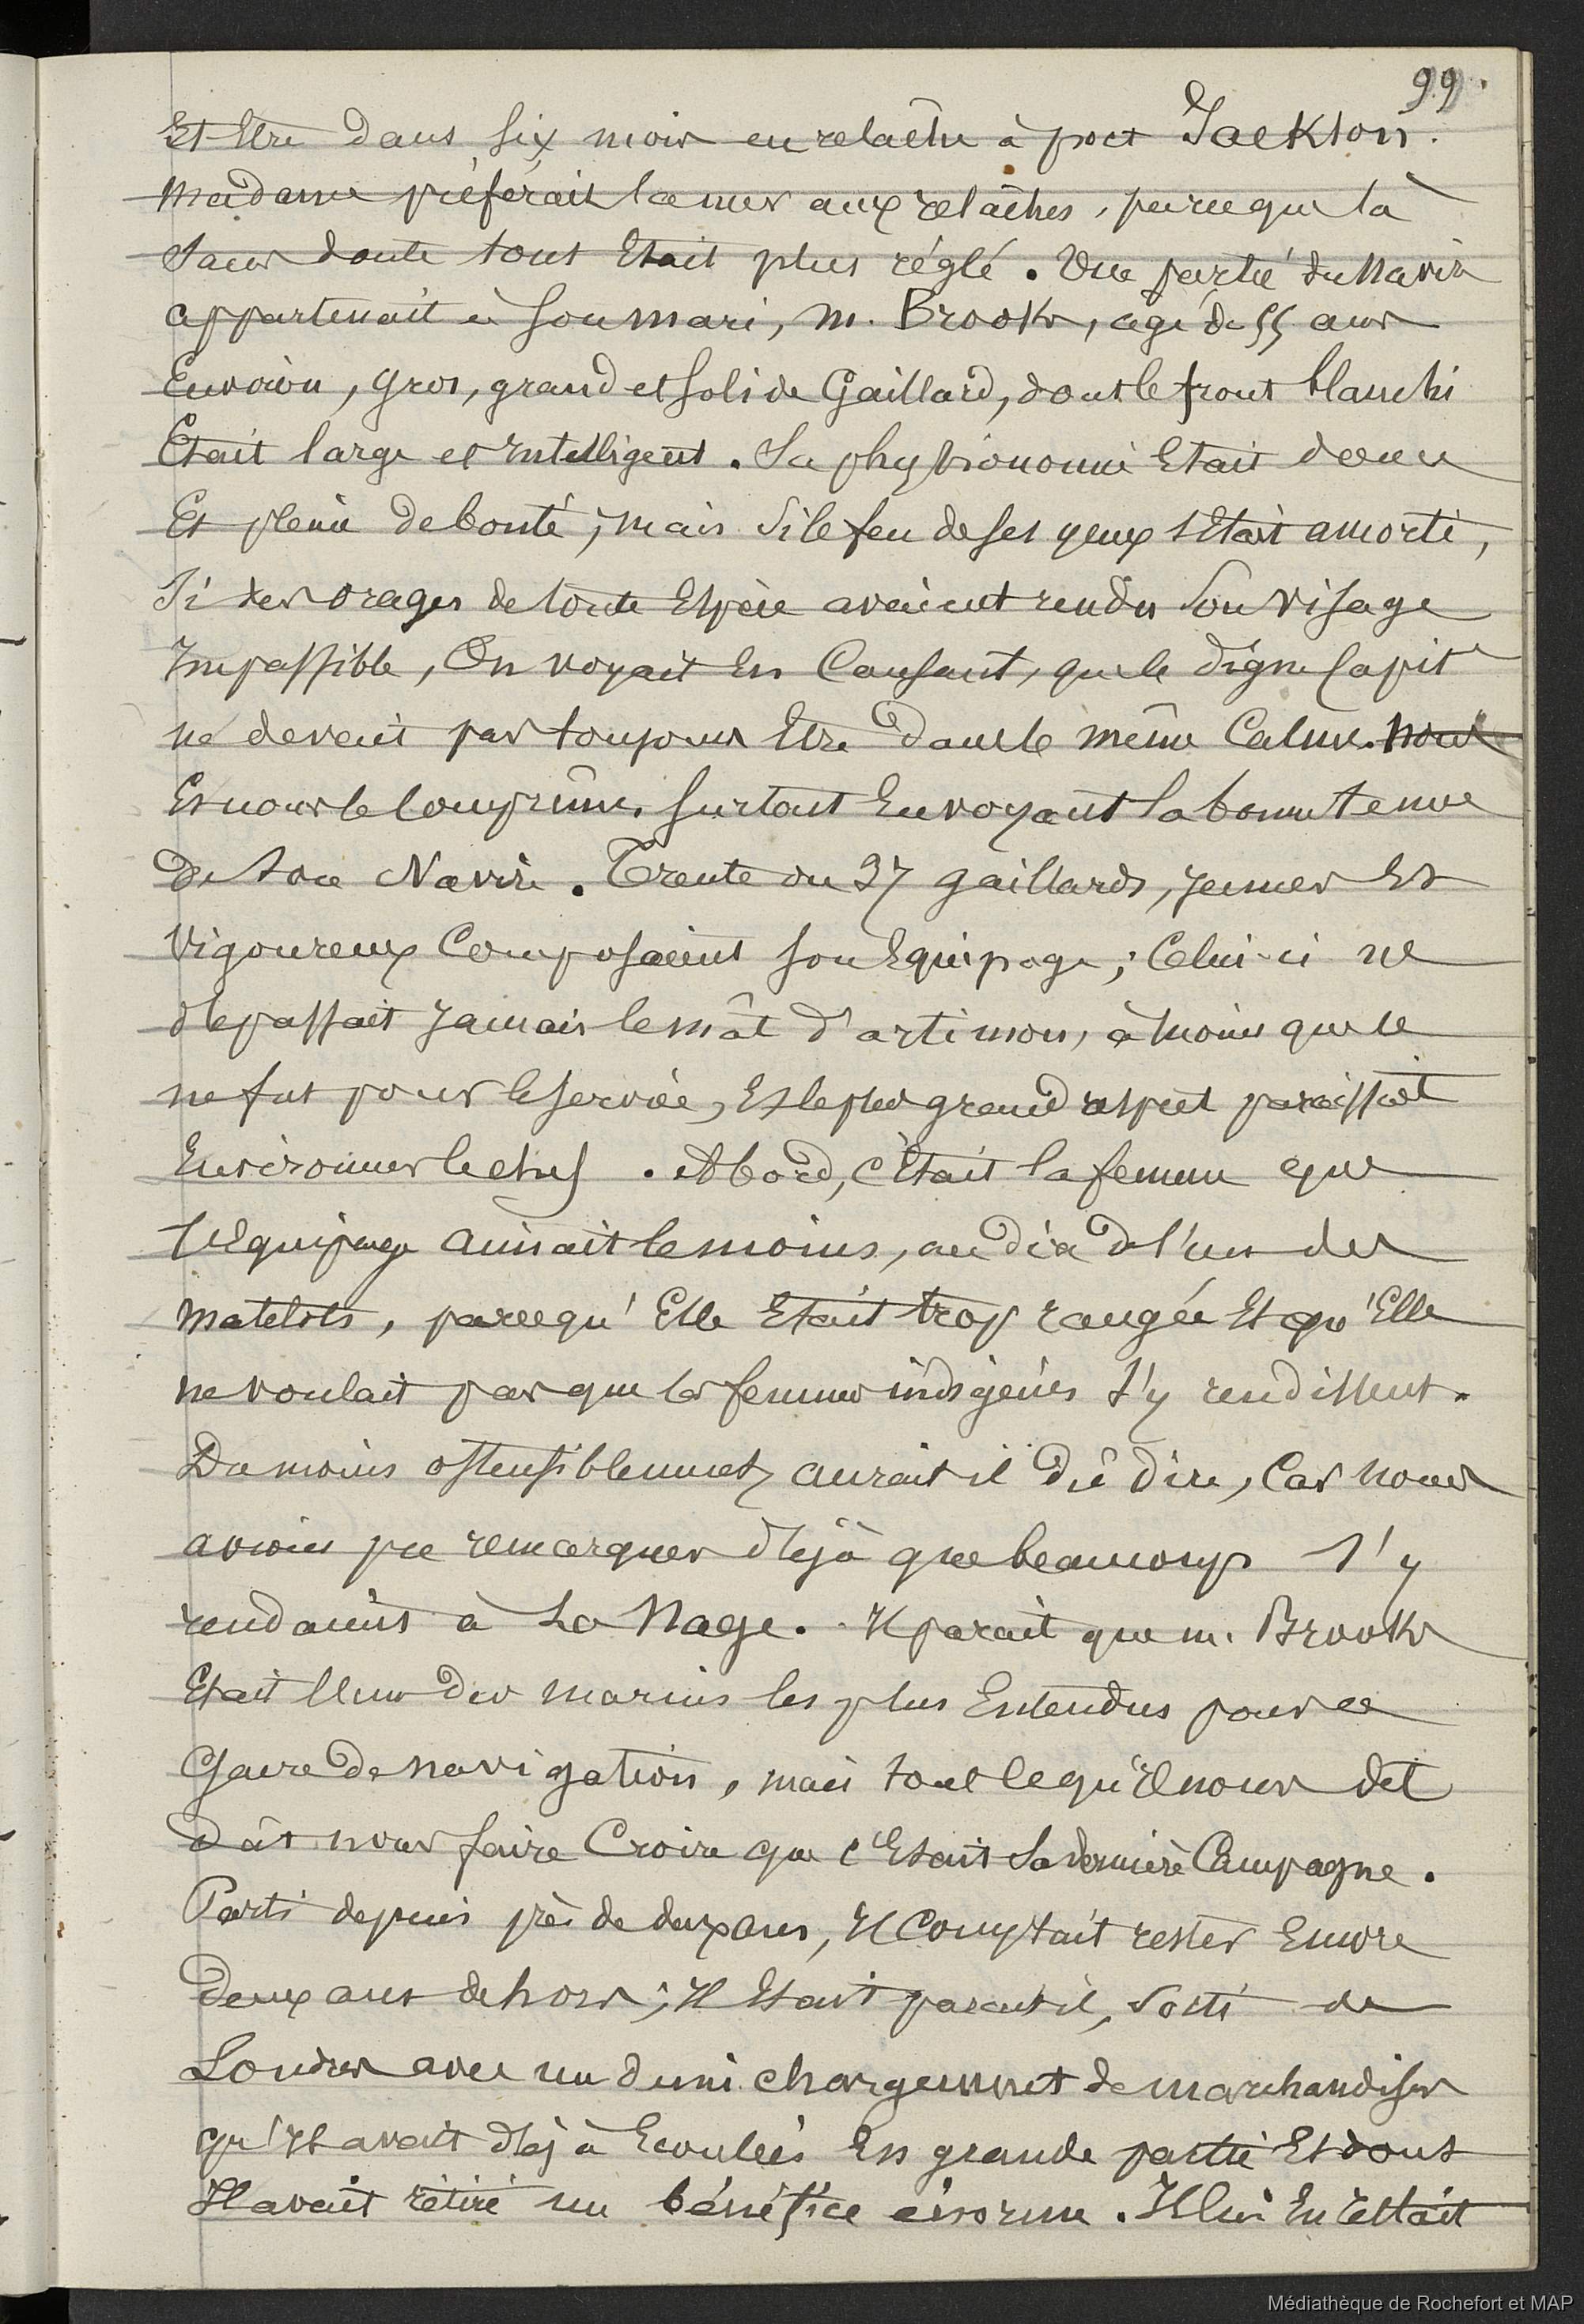 99.
Et Etre dans six mois en relâche à port Jackson.
Madame préférait la mer aux relâches, parceque là
sans doute tout Etait plus réglé. Une partie du Navire
appartenait à son mari, M. Brooks, agé de 55 ans
Environ, gros, grand et solide Gaillard, dont le front blanchi
Etait large et Intelligent. Sa physionomie Etait douce
Et pleine de bonté; mais si le feu de ses yeux s'Etait amorti,
Si des orages de toute Espèce avaient rendu son visage
Impassible, On voyait En Causant, que le digne Capit^e
ne devait pas toujours Etre dans le même Calme. Nous
Et nous le comprîmes surtout En voyant la bonne tenue
de son Navire. Trente ou 37 gaillards, jeunes Et
Vigoureux Composaient son Equipage; Celui-ci ne
dépassait Jamais le mât d'artimon, à moins que ce
ne fut pour le service, Et le plus grand respect paraissait
Environner le chef. A bord, c'Etait la femme que
l'Equipage aimait le moins, au dire de l'un des
matelots, parcequ'Elle Etait trop rangée Et qu'Elle
ne voulait pas que les femmes indigènes s'y rendissent.
Du moins ostensiblement, aurait il dû dire, Car nous
avions pu remarquer déjà que beaucoup s'y
rendaient à La Nage. Il parait que M. Brooks
Etait l'un des marins les plus Entendus pour ce
Genre de navigation, mais tout ce qu'Il nous dit
dût nous faire Croire que c'Etait sa dernière Campagne.
Parti depuis près de deux ans, Il Comptait rester Encore
deux ans dehors; Il Etait parait il, sorti de
Londres avec un demi chargement de marchandises
qu'Il avait déjà Ecoulées En grande partie Et dont
Il avait retiré un bénéfice énorme. Il lui En restait
Médiathèque de Rochefort et MAP